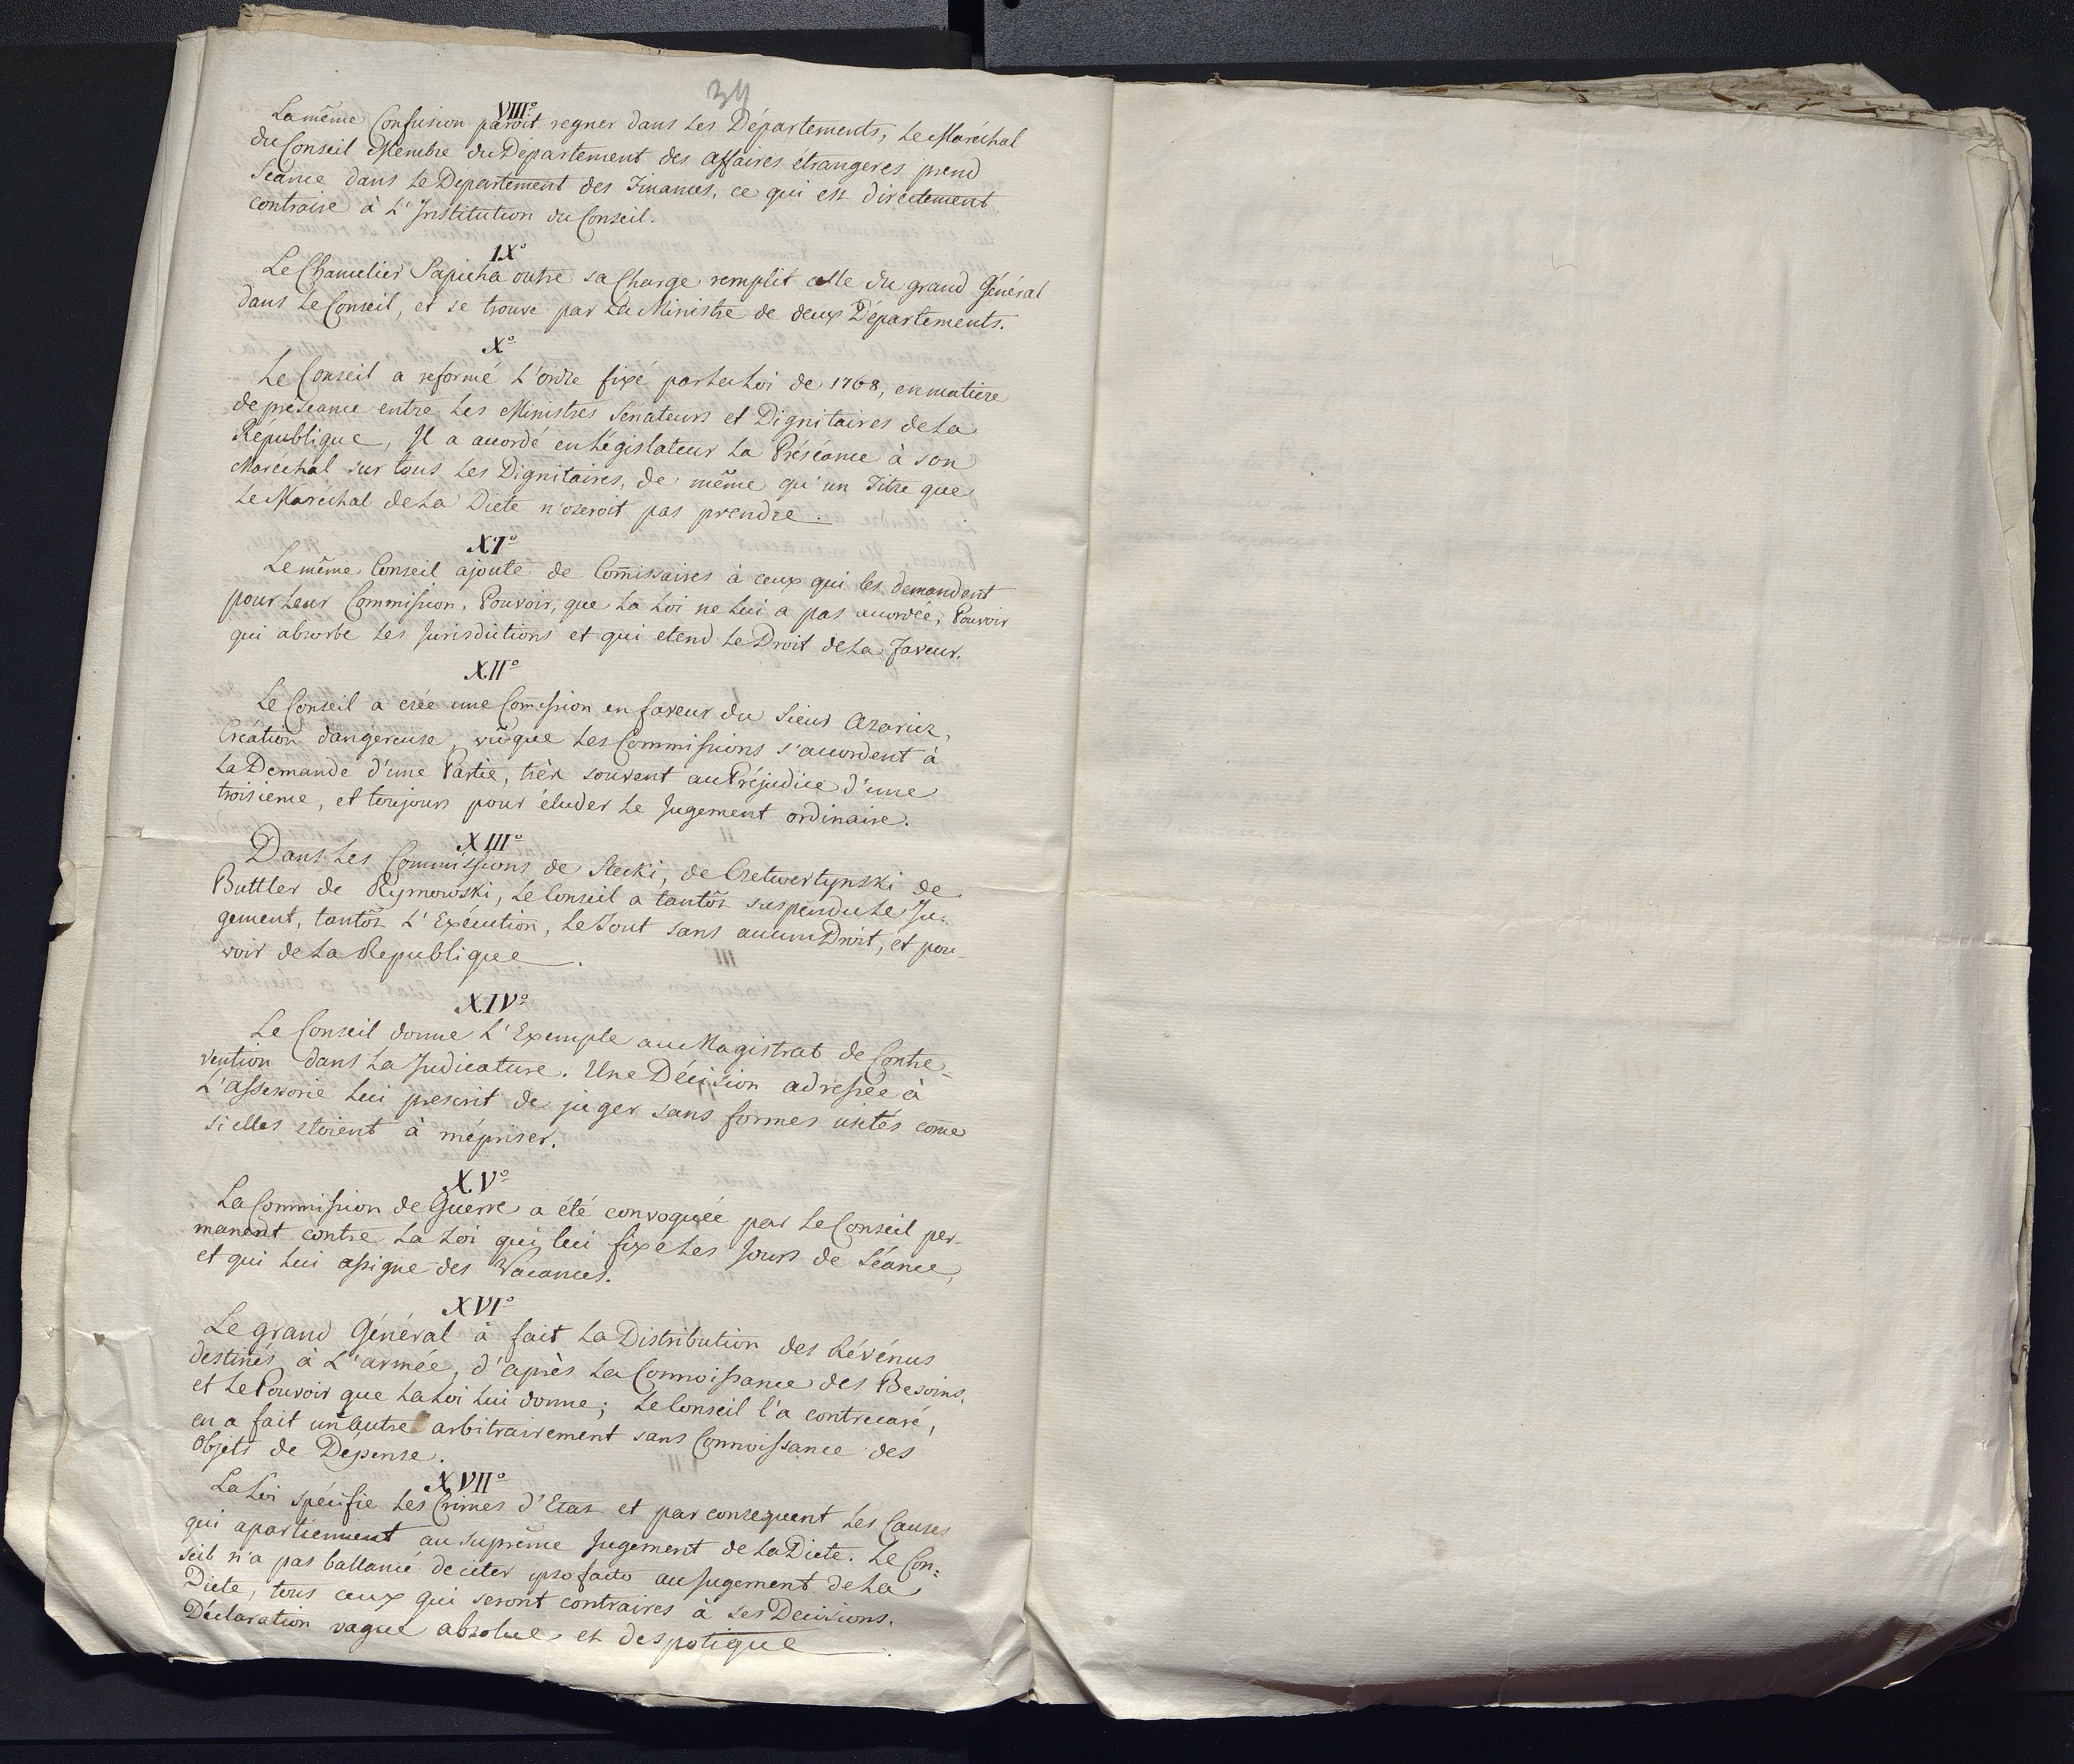 34
VIII°
La même Confusion paroit regner dans Les Départements, Le Maréchal
du Conseil Membre du Departement des affaires étrangeres prend
Séance dans Le Departement des Finances, ce qui est directement
contraire à L'Institution du Conseil.
IX°
Le Chancelier Sapieha outre sa Charge remplit celle du grand Général
dans Le Conseil, et se trouve par La Ministre de deux Départements.
X°
Le Conseil a reformé L'ordre fixé par La Loi de 1768, en matiere
de préséance entre Les Ministres Sénateurs et Dignitaires de La
République, Il a accordé en Législateur La Préséance à son
Maréchal sur tous Les Dignitaires, de même qu'un Titre que
Le Maréchal de La Diete n'oseroit pas prendre.
XI°
Le même Conseil ajoute de Com̄issaires à ceux qui les demandent
pour Leur Commission, Pouvoir, que La Loi ne Lui a pas accordée, Pouvoir
qui absorbe Les Jurisdictions et qui etend Le Droit de La Faveur.
XII°
Le Conseil a crée une Com̄ission en faveur du Sieur Azaricz,
Création dangereuse, vûque Les Commissions s'accordent à
La Demande d'une Partie, très souvent au Préjudice d'une
troisieme, et toujours pour éluder Le Jugement ordinaire.
XIII°
Dans Les Commissions de Stecki, de Czetwertynski de
Buttler de Rymowski, Le Conseil a tantôt suspendu Le Ju-
gement, tantôt L'Exécution, Le Tout sans aucun Droit, et pou-
voir de La Republique.
XIV°
Le Conseil donne L'Exemple au Magistrat de Contre-
vention dans La Judicature. Une Décision adressée à
L'assessorie Lui prescrit de juger sans formes usités com̄e
si elles etoient à mépriser.
XV°
La Commission de Guerre a été convoquée par Le Conseil per-
manent contre La Loi qui lui fixe Les Jours de Séance,
et qui Lui assigne des Vacances.
XVI°
Le grand Général à fait La Distribution des Révénus
destinés à L'armée, d'après La Connoissance des Besoins,
et Le Pouvoir que La Loi Lui donne; Le Conseil l'a contrecaré,
en a fait un autre arbitrairement sans Connoissance des
Objets de Dépense.
XVII°
La Loi spécifie Les Crimes d'Etat et par consequent Les Causes
qui apartiennent au suprême Jugement de La Diete. Le Con-
seil n'a pas ballancé de citer ipso facto au Jugement de La
Diete, tous ceux qui seront contraires à ses Decisions.
Déclaration vague absolue et despotique.